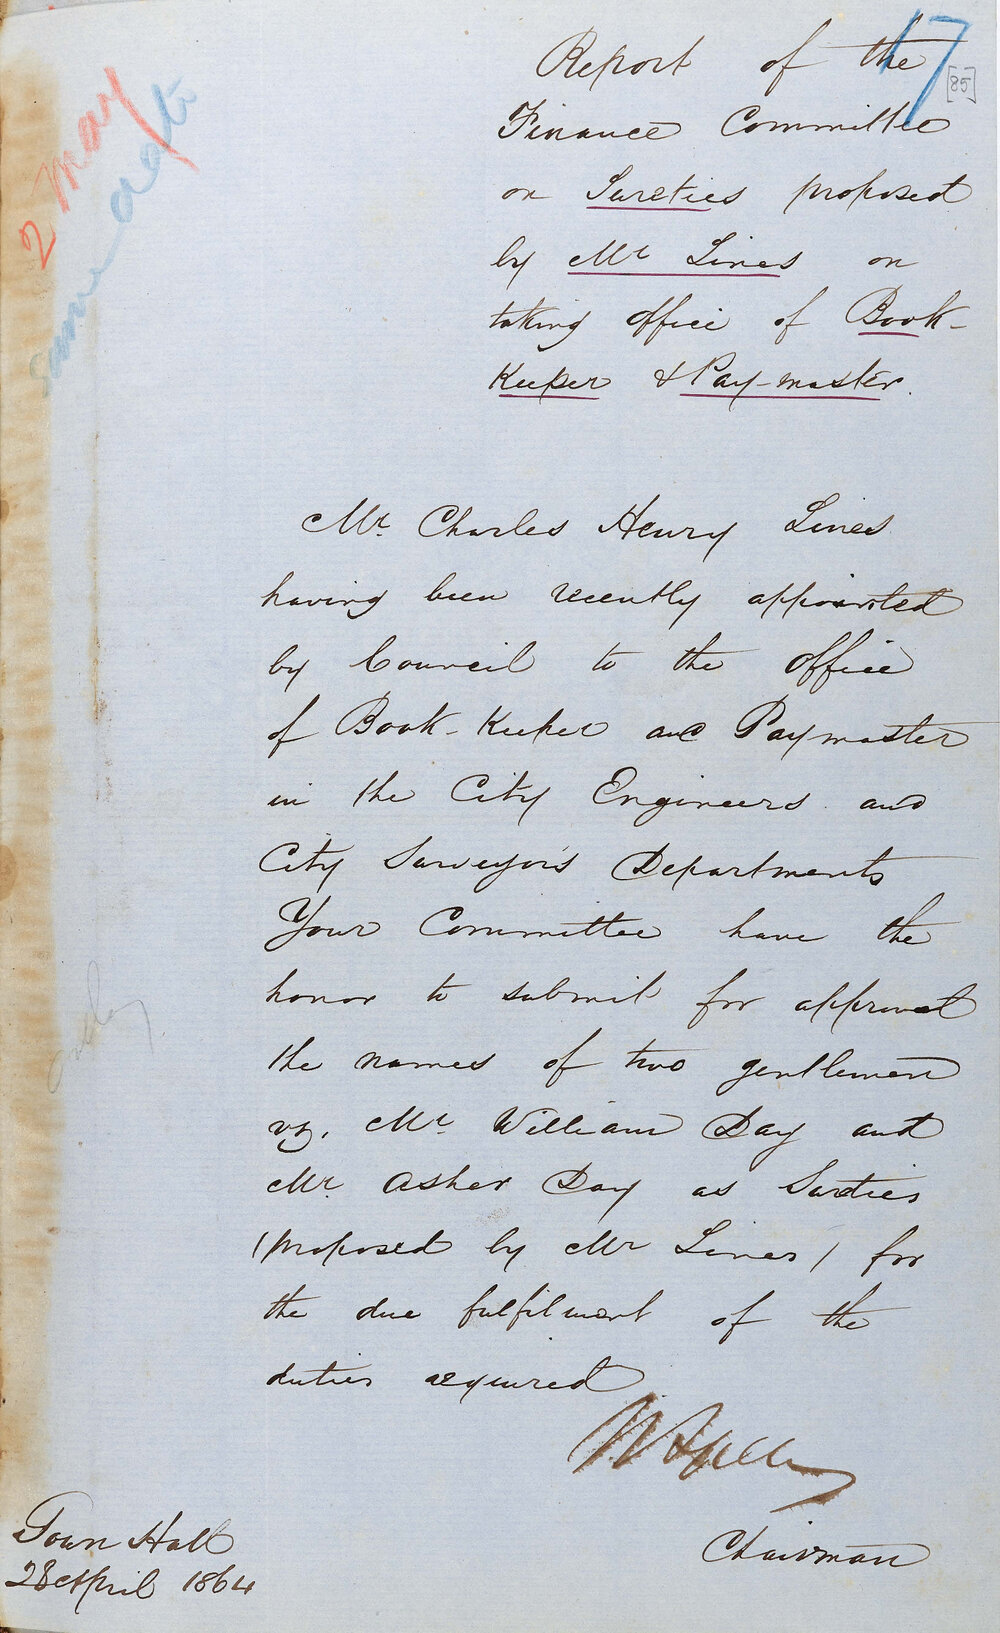 17
[85]
Report of the
Finance Committee
on Sureties proposed
by Mr Lines on
taking office of Book-
Keeper & Pay-master.
2 May
same
Mr. Charles Henry Lines
having been recently appointed
by Council to the office
of Book-Keeper and Paymaster
in the City Engineers and
City Surveyor's Departments
Your Committee have the
honor to submit for approval
the names of two gentlemen
vz. Mr William Day and
Mr. Asher Day as Sureties
(proposed by Mr Lines) for
the due fulfilment of the
duties required
Chairman
Town Hall
28 April 1864